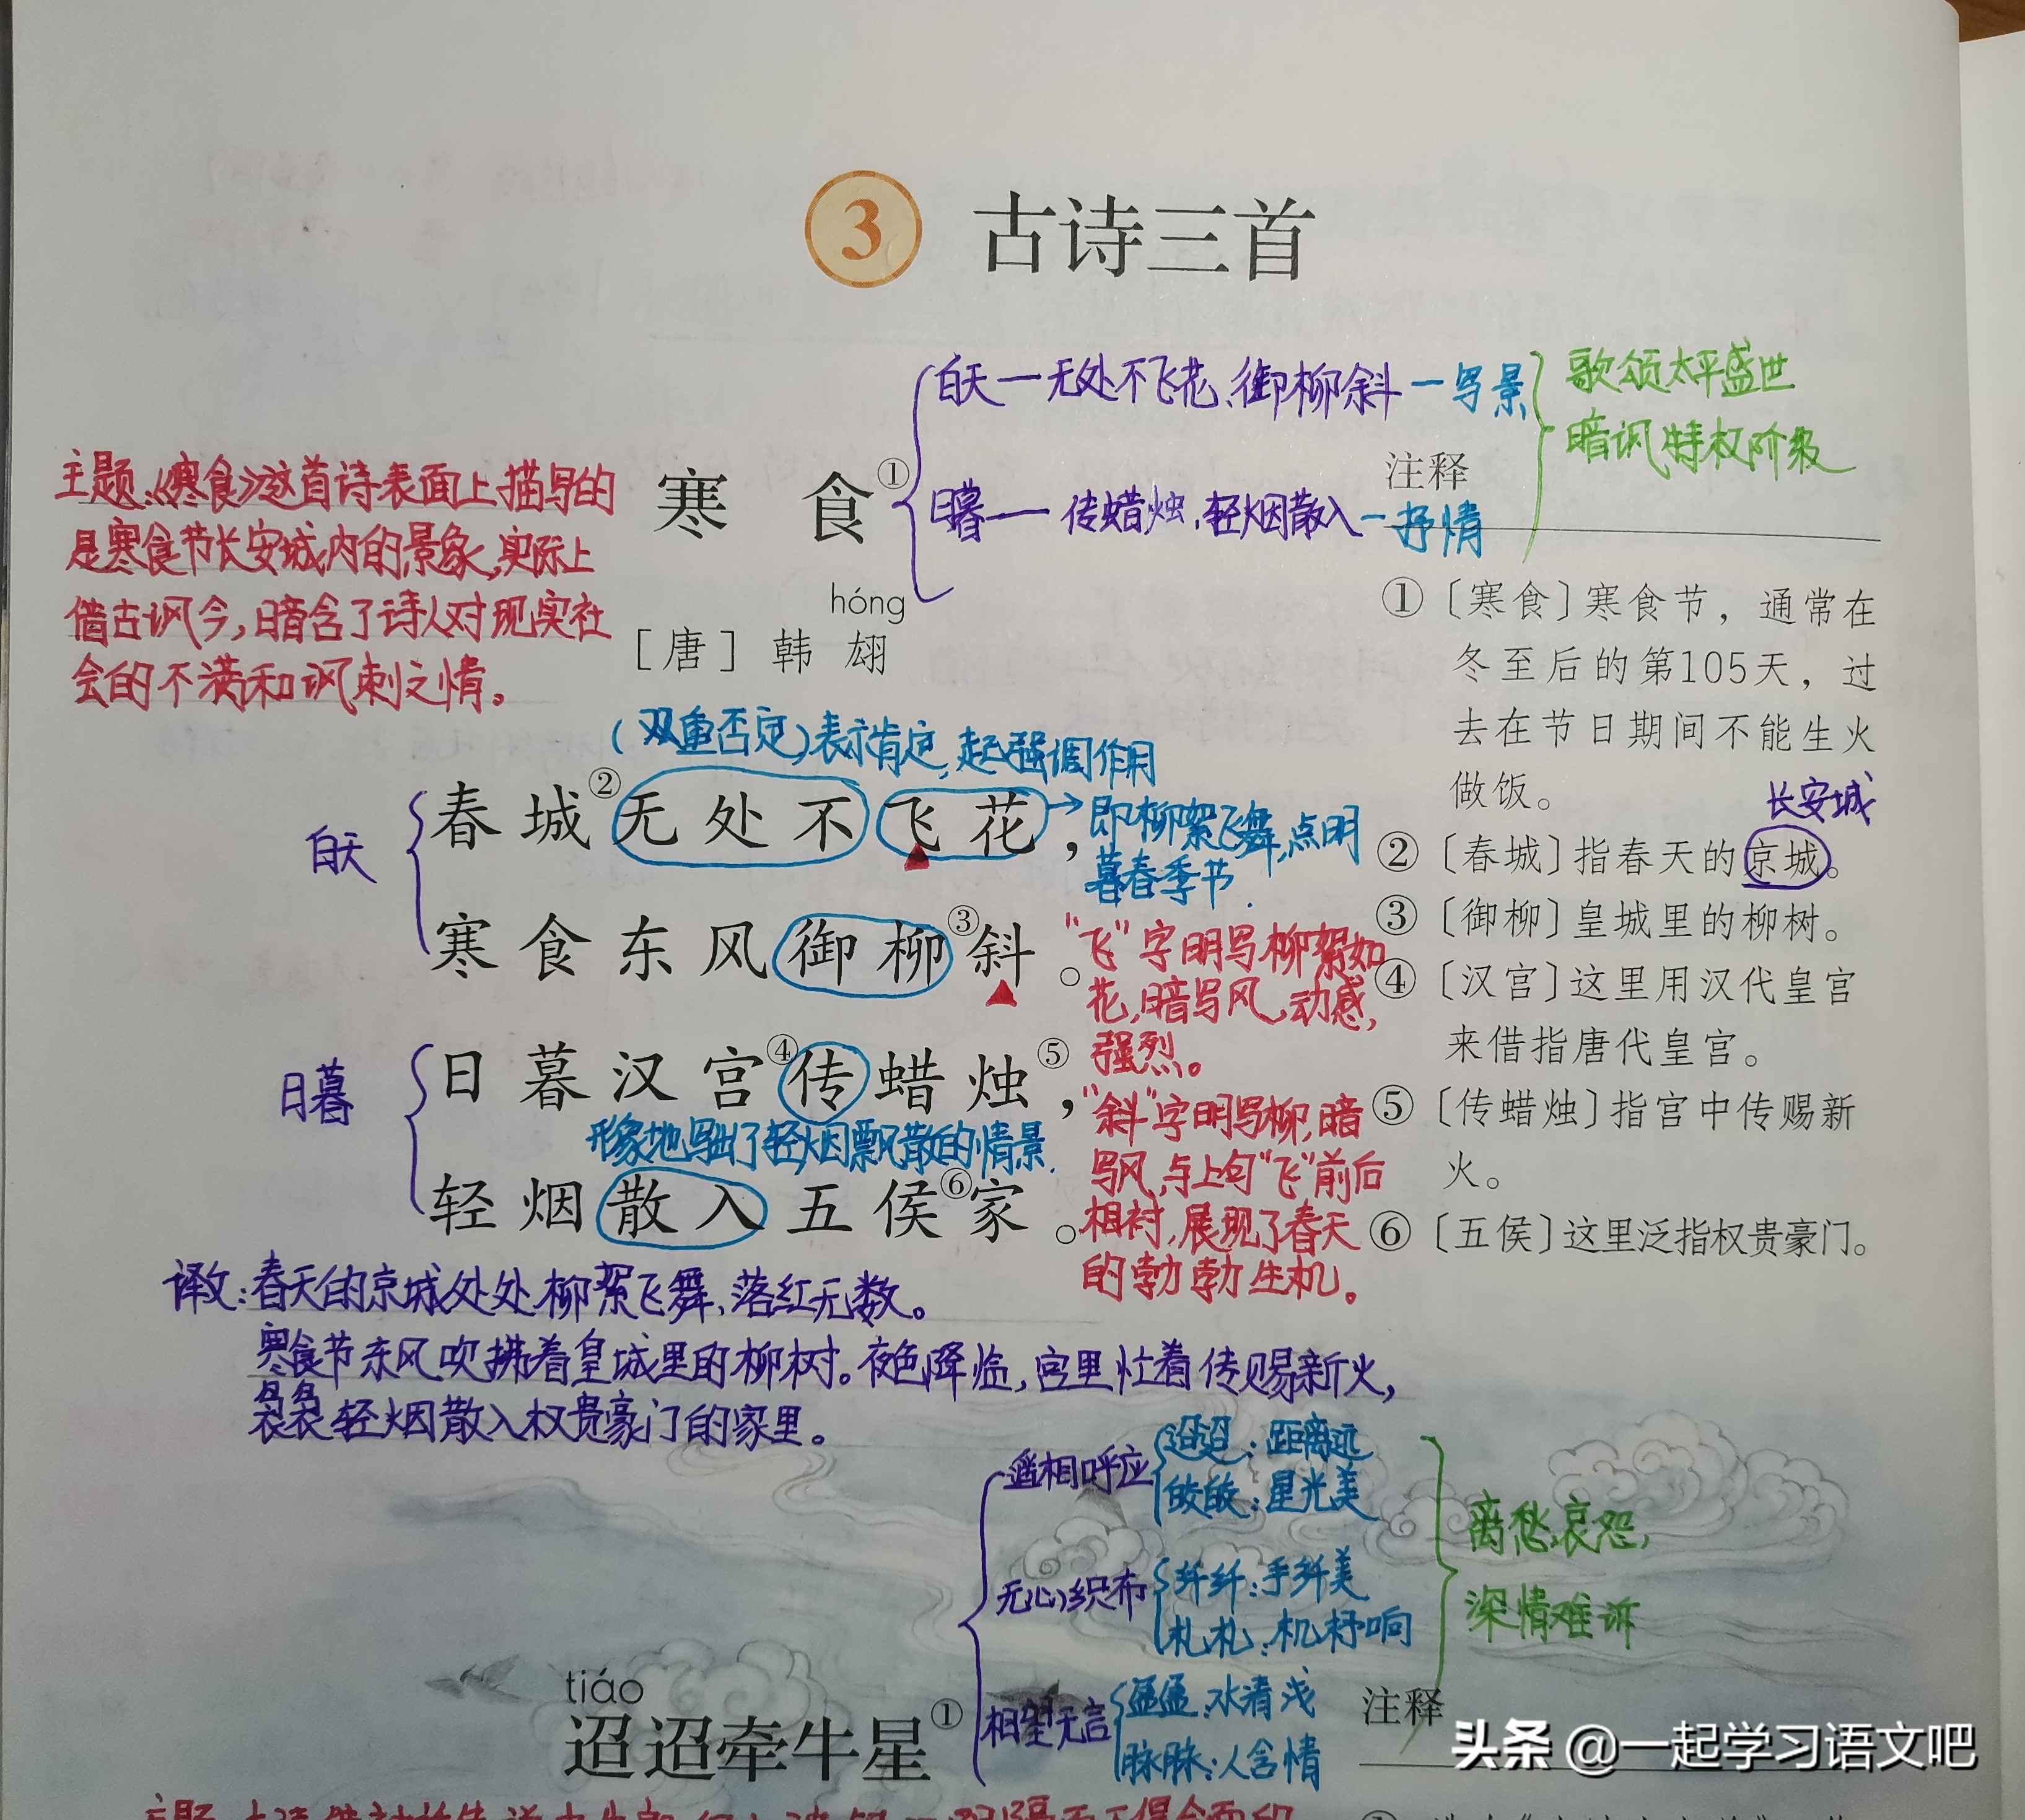 3 古诗三首
白天—无处不飞花、御柳斜—写景
歌颂太平盛世
暗讽特权阶级
日暮—传蜡烛,轻烟散入—抒情
主题:《寒食》这首诗表面上描写的
是寒食节长安城内的景象,实际上
借古讽今,暗含了诗人对现实社
会的不满和讽刺之情。
寒食①
hóng
[唐] 韩翃
(双重否定)表示肯定,起强调作用
白天
春城②无处不飞花,
即柳絮飞舞,点明
暮春季节.
寒食东风御柳③斜。
"飞"字明写柳絮如
花,暗写风,动感
强烈。
日暮
日暮汉宫④传蜡烛⑤,
形象地写出了轻烟飘散的情景.
轻烟散入五侯⑥家。
"斜"字明写柳,暗
写风,与上句"飞"前后
相衬,展现了春天
的勃勃生机。
译文:春天的京城处处柳絮飞舞,落红无数。
寒食节东风吹拂着皇城里的柳树。夜色降临,宫里忙着传赐新火,
袅袅轻烟散入权贵豪门的家里。
注释
①〔寒食〕寒食节,通常在
冬至后的第105天,过
去在节日期间不能生火
做饭。
长安城
②〔春城〕指春天的京城。
③〔御柳〕皇城里的柳树。
④〔汉宫〕这里用汉代皇宫
来借指唐代皇宫。
⑤〔传蜡烛〕指宫中传赐新
火。
⑥〔五侯〕这里泛指权贵豪门。
遥相呼应
迢迢:距离远
皎皎:星光美
无心织布
纤纤:手纤美
札札:机杼响
相望无言
盈盈:水清浅
脉脉:人含情
离愁哀怨,
深情难诉
tiáo
迢迢牵牛星①
注释
头条 @一起学习语文吧